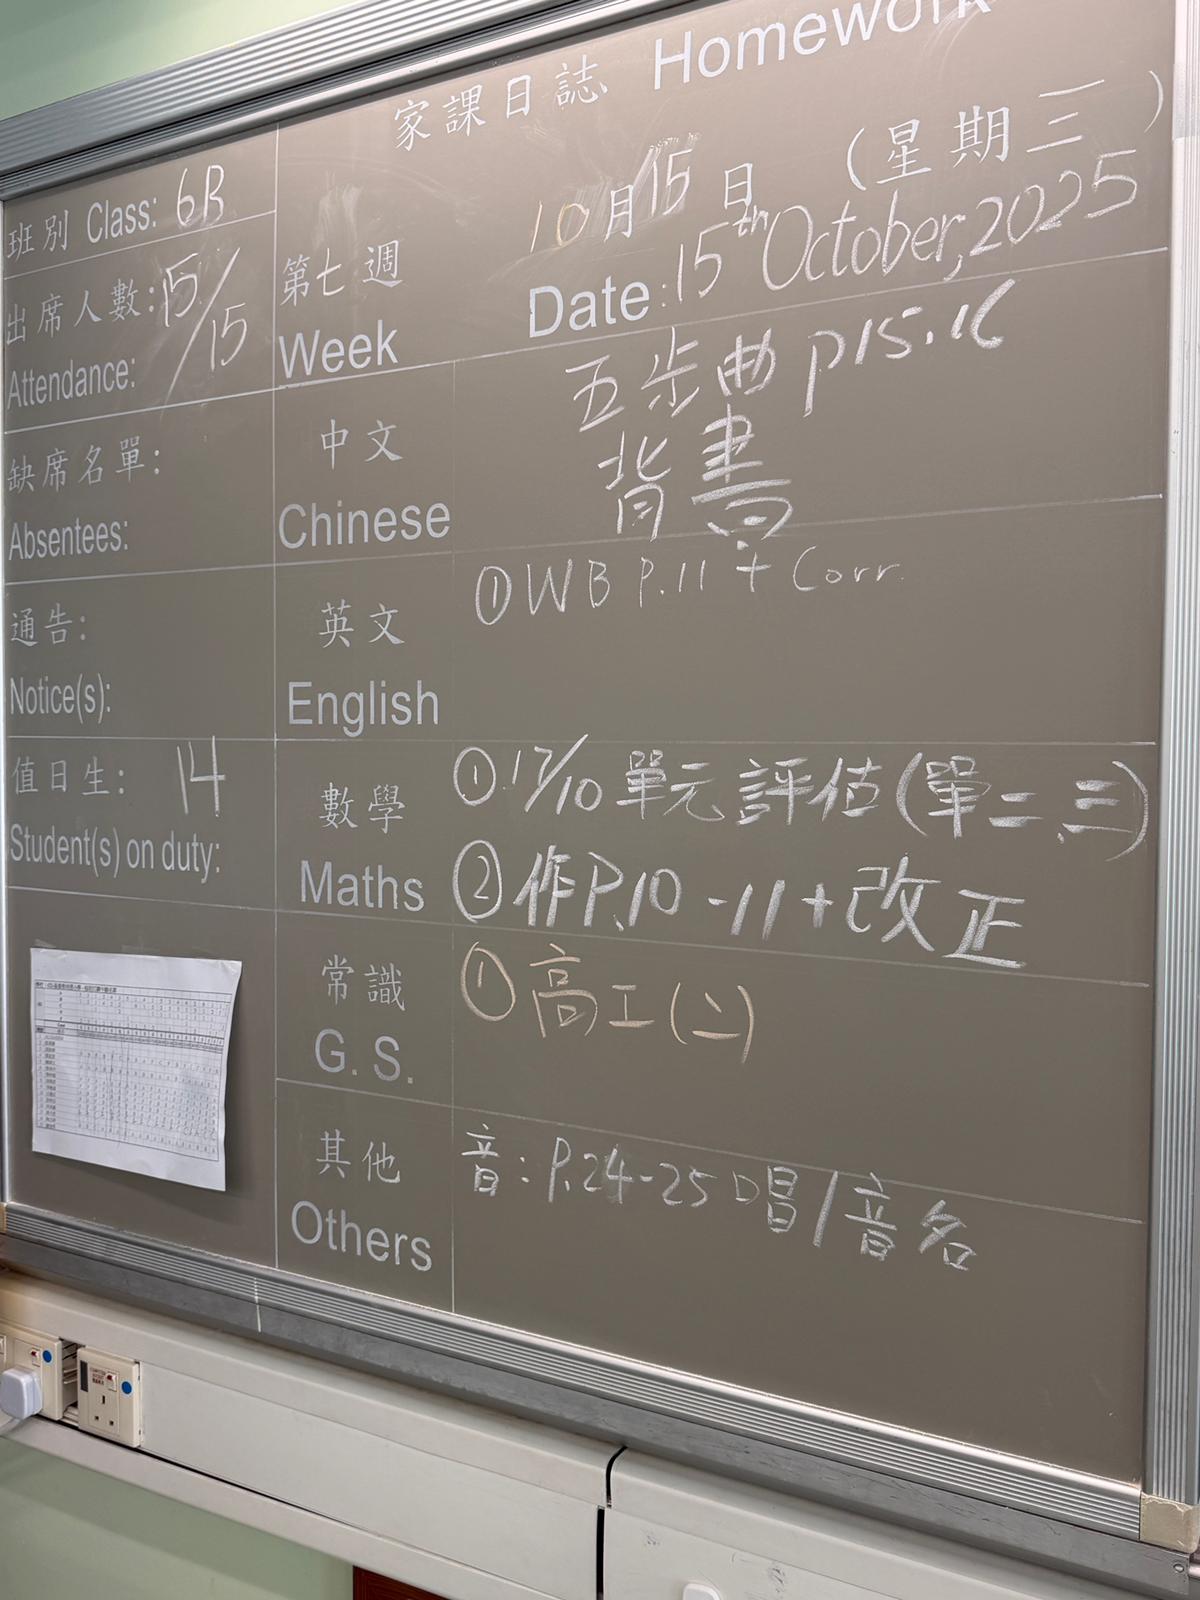 家課日誌 Homework
10月15日 (星期三)
Date: 15th October, 2025
第七週
Week
班別 Class: 6B
出席人數: 15/15
Attendance:
缺席名單:
Absentees:
通告:
Notice(s):
值日生: 14
Student(s) on duty:
中文
Chinese
五步曲 p15.16
背書
英文
English
①WB P.11 + Corr.
數學
Maths
①17/10 單元評估(單二、三)
②作P.10-11+改正
常識
G. S.
①高工(二)
其他
Others
音: P.24-25 唱/音名